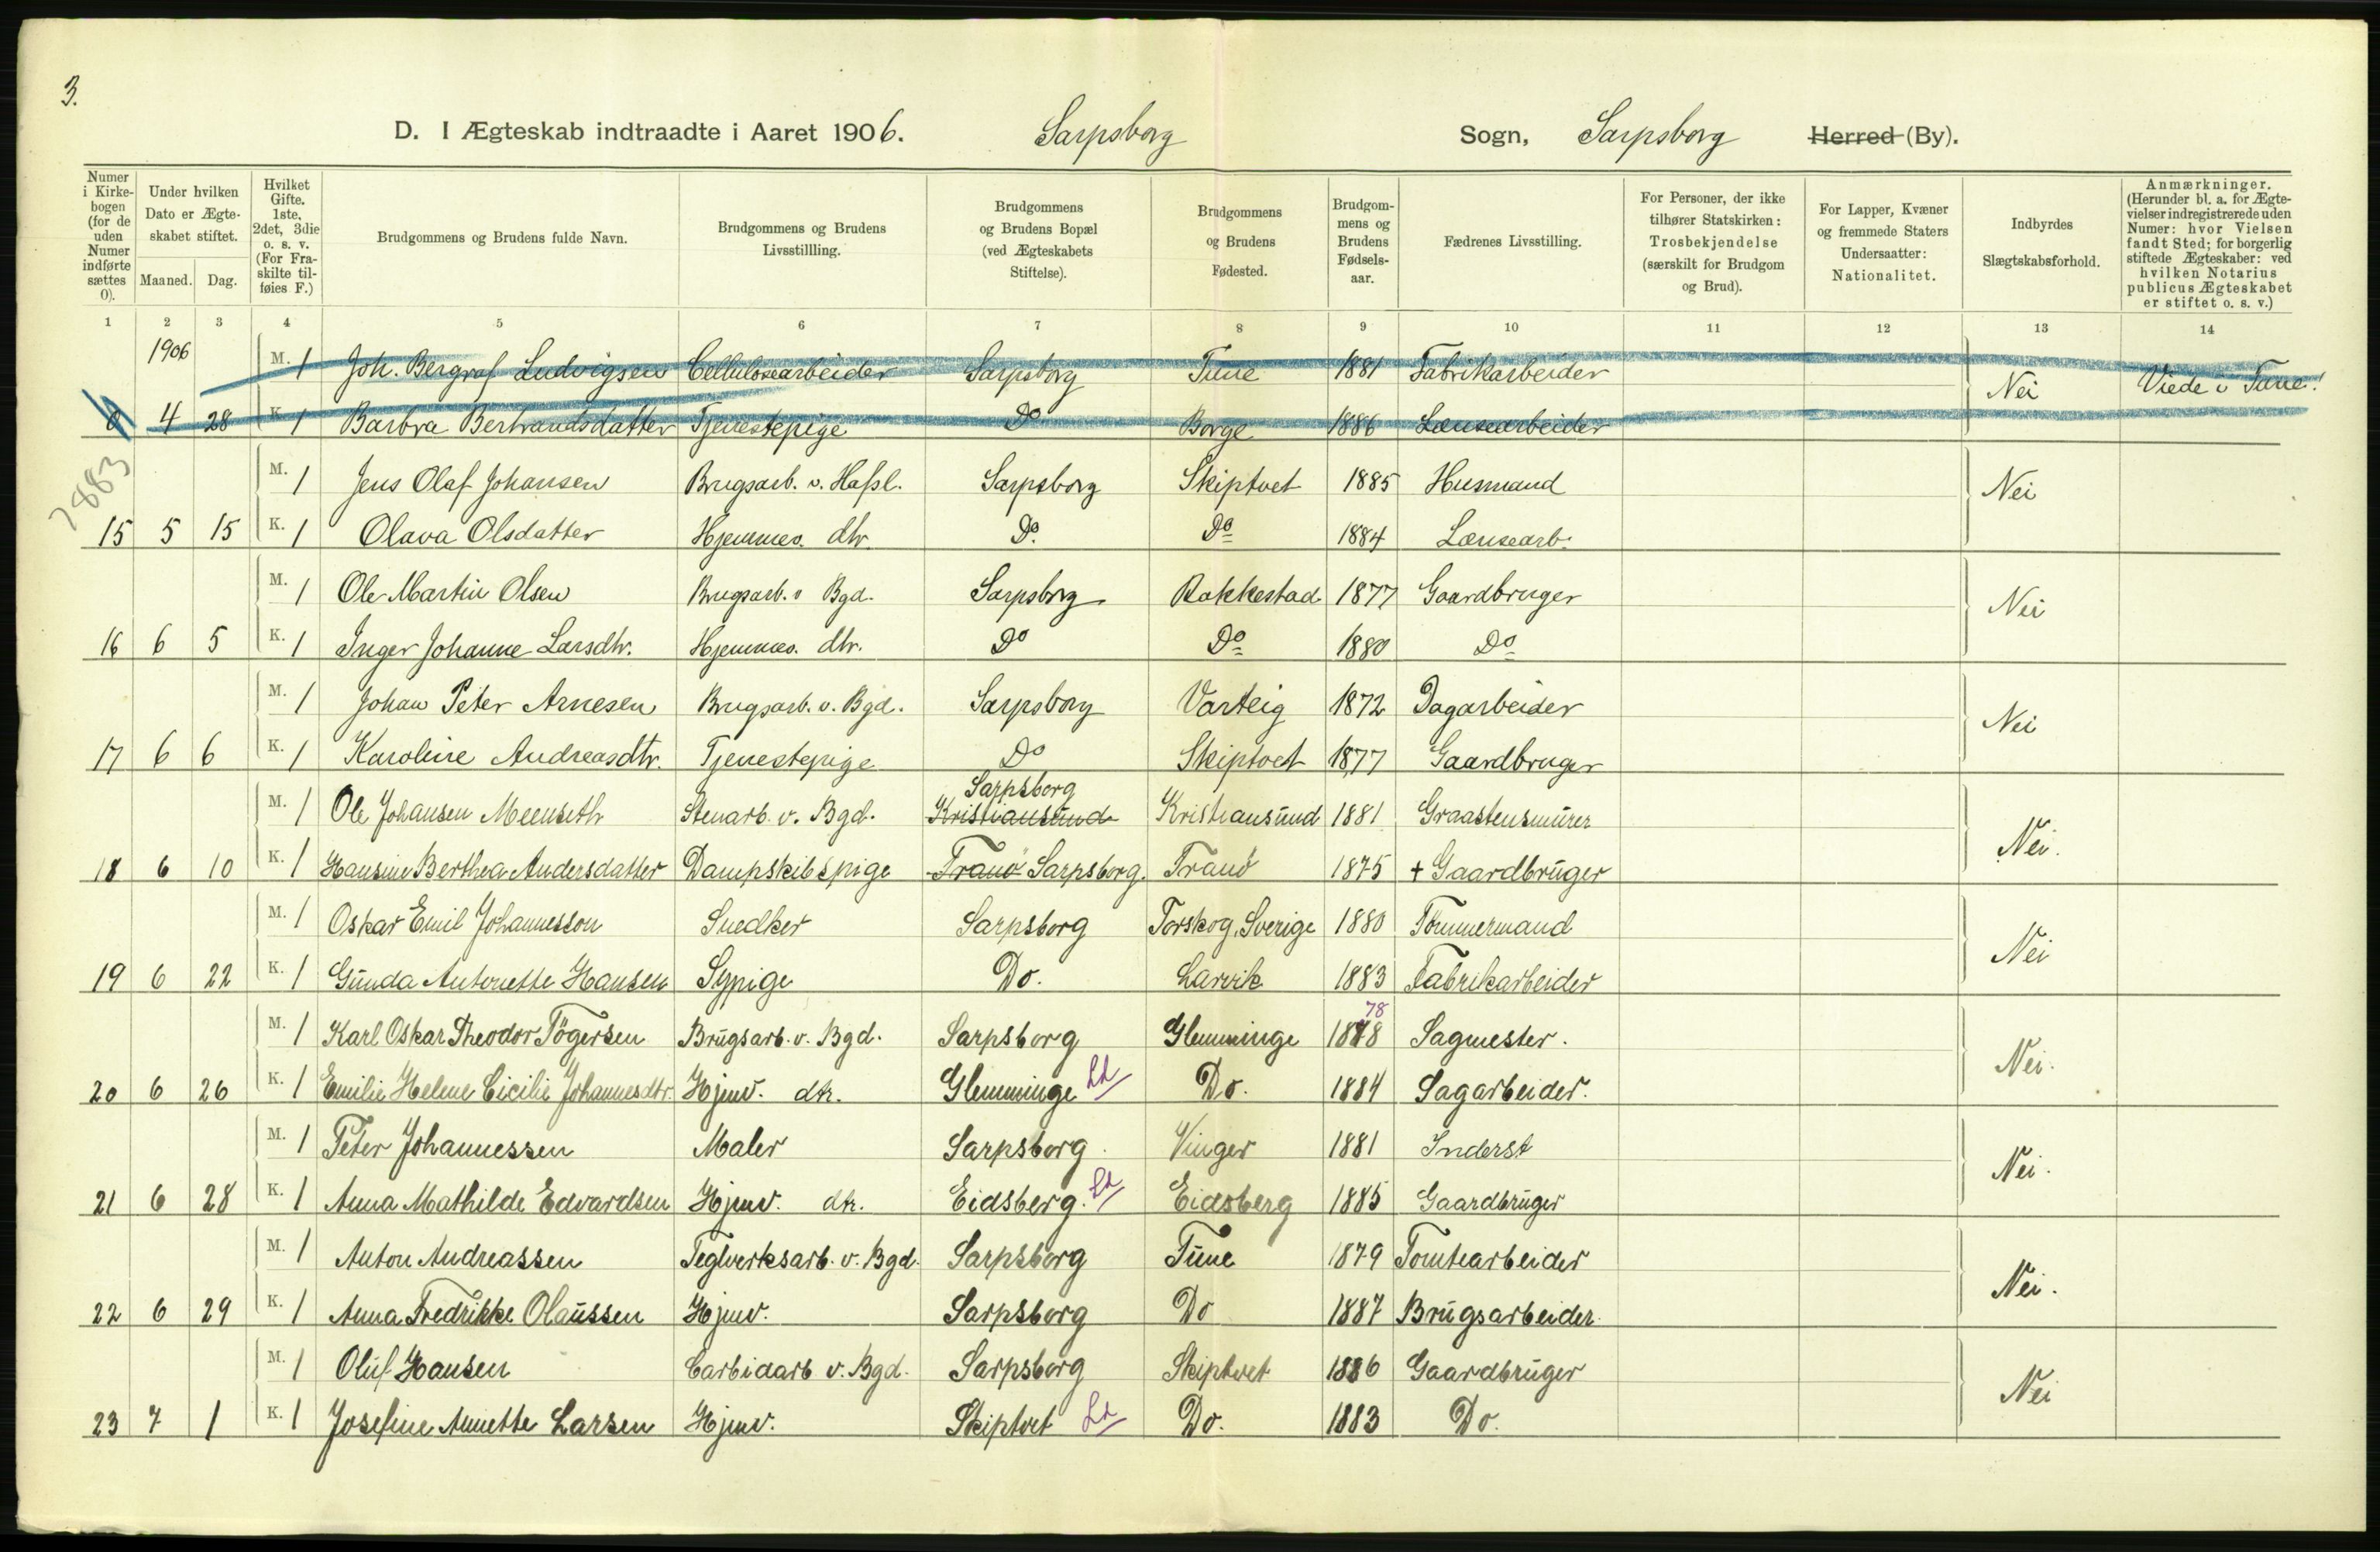 3.
D. I Ægteskab indtraadte i Aaret 1906. Sarpsborg Sogn, Sarpsborg Herred (By).
Numer i Kirkebogen (for de uden Numer indførte sættes 0).
Under hvilken Dato er Ægteskabet stiftet.
Maaned. Dag.
Hvilket Gifte. 1ste, 2det, 3die o. s. v. (For Fraskilte tilføies F.)
Brudgommens og Brudens fulde Navn.
Brudgommens og Brudens Livsstillling.
Brudgommens og Brudens Bopæl (ved Ægteskabets Stiftelse).
Brudgommens og Brudens Fødested.
Brudgommens og Brudens Fødselsaar.
Fædrenes Livsstilling.
For Personer, der ikke tilhører Statskirken: Trosbekjendelse (særskilt for Brudgom og Brud).
For Lapper, Kvæner og fremmede Staters Undersaatter: Nationalitet.
Indbyrdes Slægtskabsforhold.
Anmærkninger. (Herunder bl. a. for Ægtevielser indregistrerede uden Numer: hvor Vielsen fandt Sted; for borgerlig stiftede Ægteskaber: ved hvilken Notarius publicus Ægteskabet er stiftet o. s. v.)
1 2 3 4 5 6 7 8 9 10 11 12 13 14
1906
M. 1 Joh. Bergraf Ludvigsen Cellulosearbeider Sarpsborg Tune 1881 Fabrikarbeider Nei Viede i Tune!
0 4 28 K. 1 Barbra Bertrandsdatter Tjenestepige Do Borge 1886 Lænsearbeider
7883
M. 1 Jens Olaf Johansen Brugsarb. v. Hafsl. Sarpsborg Skiptvet 1885 Husmand Nei
15 5 15 K. 1 Olava Olsdatter Hjemmev. dtr. Do. Do 1884 Lænsearb.
M. 1 Ole Martin Olsen Brugsarb. v Bgd. Sarpsborg Rakkestad 1877 Gaardbruger Nei
16 6 5 K. 1 Inger Johanne Larsdtr. Hjemmev. dtr. Do Do 1880 Do
M. 1 Johan Peter Arnesen Brugsarb. v. Bgd. Sarpsborg Varteig 1872 Dagarbeider Nei
17 6 6 K. 1 Karoline Andreasdtr. Tjenestepige Do Skiptvet 1877 Gaardbruger
Sarpsborg
M. 1 Ole Johansen Meenseth Stenarb. v. Bgd. Kristiansund Kristiansund 1881 Graastensmurer Nei.
18 6 10 K. 1 Hansine Berthea Andersdatter Dampskibspige Tranö Sarpsborg. Tranö 1875 + Gaardbruger
M. 1 Oskar Emil Johannesson Snedker Sarpsborg Torskog, Sverige 1880 Tömmermand Nei
19 6 22 K. 1 Gunda Antonette Hansen Sypige Do. Larvik 1883 Fabrikarbeider
78
M. 1 Karl Oskar Theodor Tögersen Brugsarb. v. Bgd. Sarpsborg Glemminge 1878 Sagmester. Nei.
20 6 26 K. 1 Emilie Helene Cicilie Johannesdtr. Hjmv. dtr. Glemminge Ld Do. 1884 Sagarbeider.
M. 1 Peter Johannessen Maler Sarpsborg Vinger 1881 Inderst Nei.
21 6 28 K. 1 Anna Mathilde Edvardsen Hjmv. dtr. Eidsberg. Ld Eidsberg 1885 Gaardbruger
M. 1 Anton Andreassen Teglverksarb. v. Bgd. Sarpsborg Tune 1879 Tomtearbeider Nei.
22 6 29 K. 1 Anna Fredrikke Olaussen Hjmv. Sarpsborg Do 1887 Brugsarbeider.
M. 1 Oluf Hansen Carbidarb v. Bgd. Sarpsborg Skiptvet 1886 Gaardbruger Nei
23 7 1 K. 1 Josefine Annette Larsen Hjmv. Skiptvet Ld Do. 1883 Do.